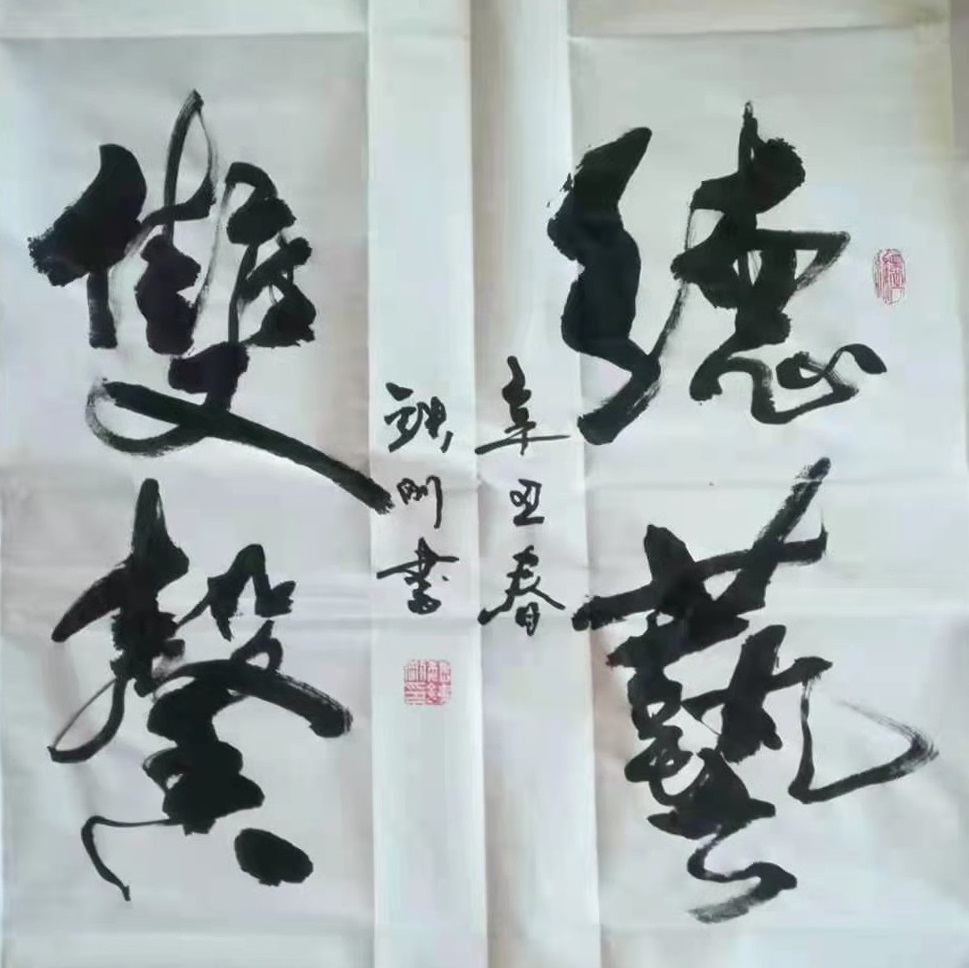 德藝
雙馨
辛丑春
刚書